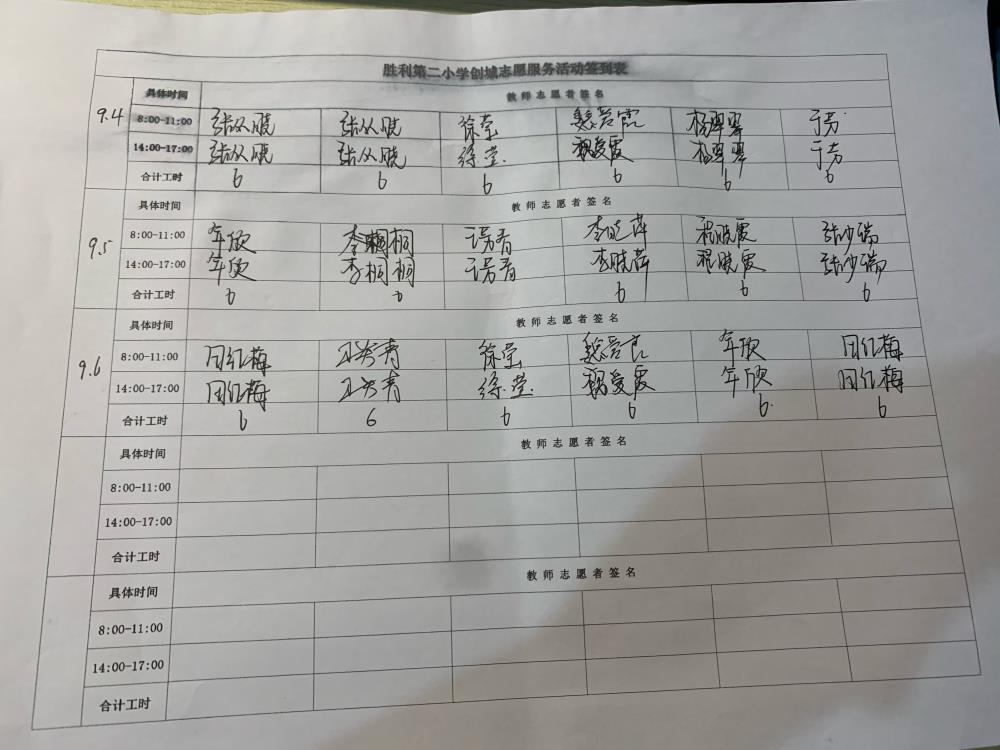 胜利第二小学创城志愿服务活动签到表
9.4 具体时间 教师志愿者签名
8:00-11:00 张从晓 张从晓 徐莹 魏爱霞 杨翠翠 于芳
14:00-17:00 张从晓 张从晓 徐莹 魏爱霞 杨翠翠 于芳
合计工时 6 6 6 6 6 6
9.5 具体时间 教师志愿者签名
8:00-11:00 年欣 李桐桐 李晓萍 程晓霞 张少瑞
14:00-17:00 年欣 李桐桐 李晓萍 程晓霞 张少瑞
合计工时 6 6 6 6 6
9.6 具体时间 教师志愿者签名
8:00-11:00 田红梅 徐莹 魏爱霞 年欣 田红梅
14:00-17:00 田红梅 徐莹 魏爱霞 年欣 田红梅
合计工时 6 6 6 6 6 6
具体时间 教师志愿者签名
8:00-11:00
14:00-17:00
合计工时
具体时间 教师志愿者签名
8:00-11:00
14:00-17:00
合计工时